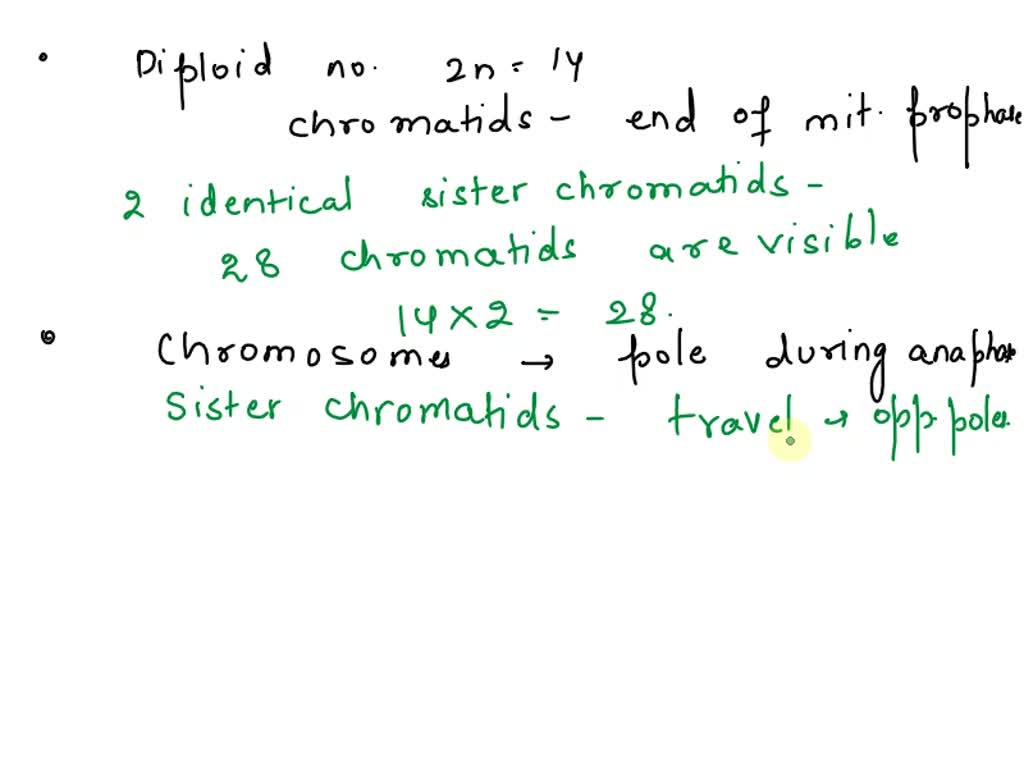 • Diploid no. 2n = 14
chromatids - end of mit. prophase
2 identical sister chromatids -
28 chromatids are visible
14 × 2 = 28.
• Chromosomes → pole during anaphase
Sister chromatids - travel → opp. poles.